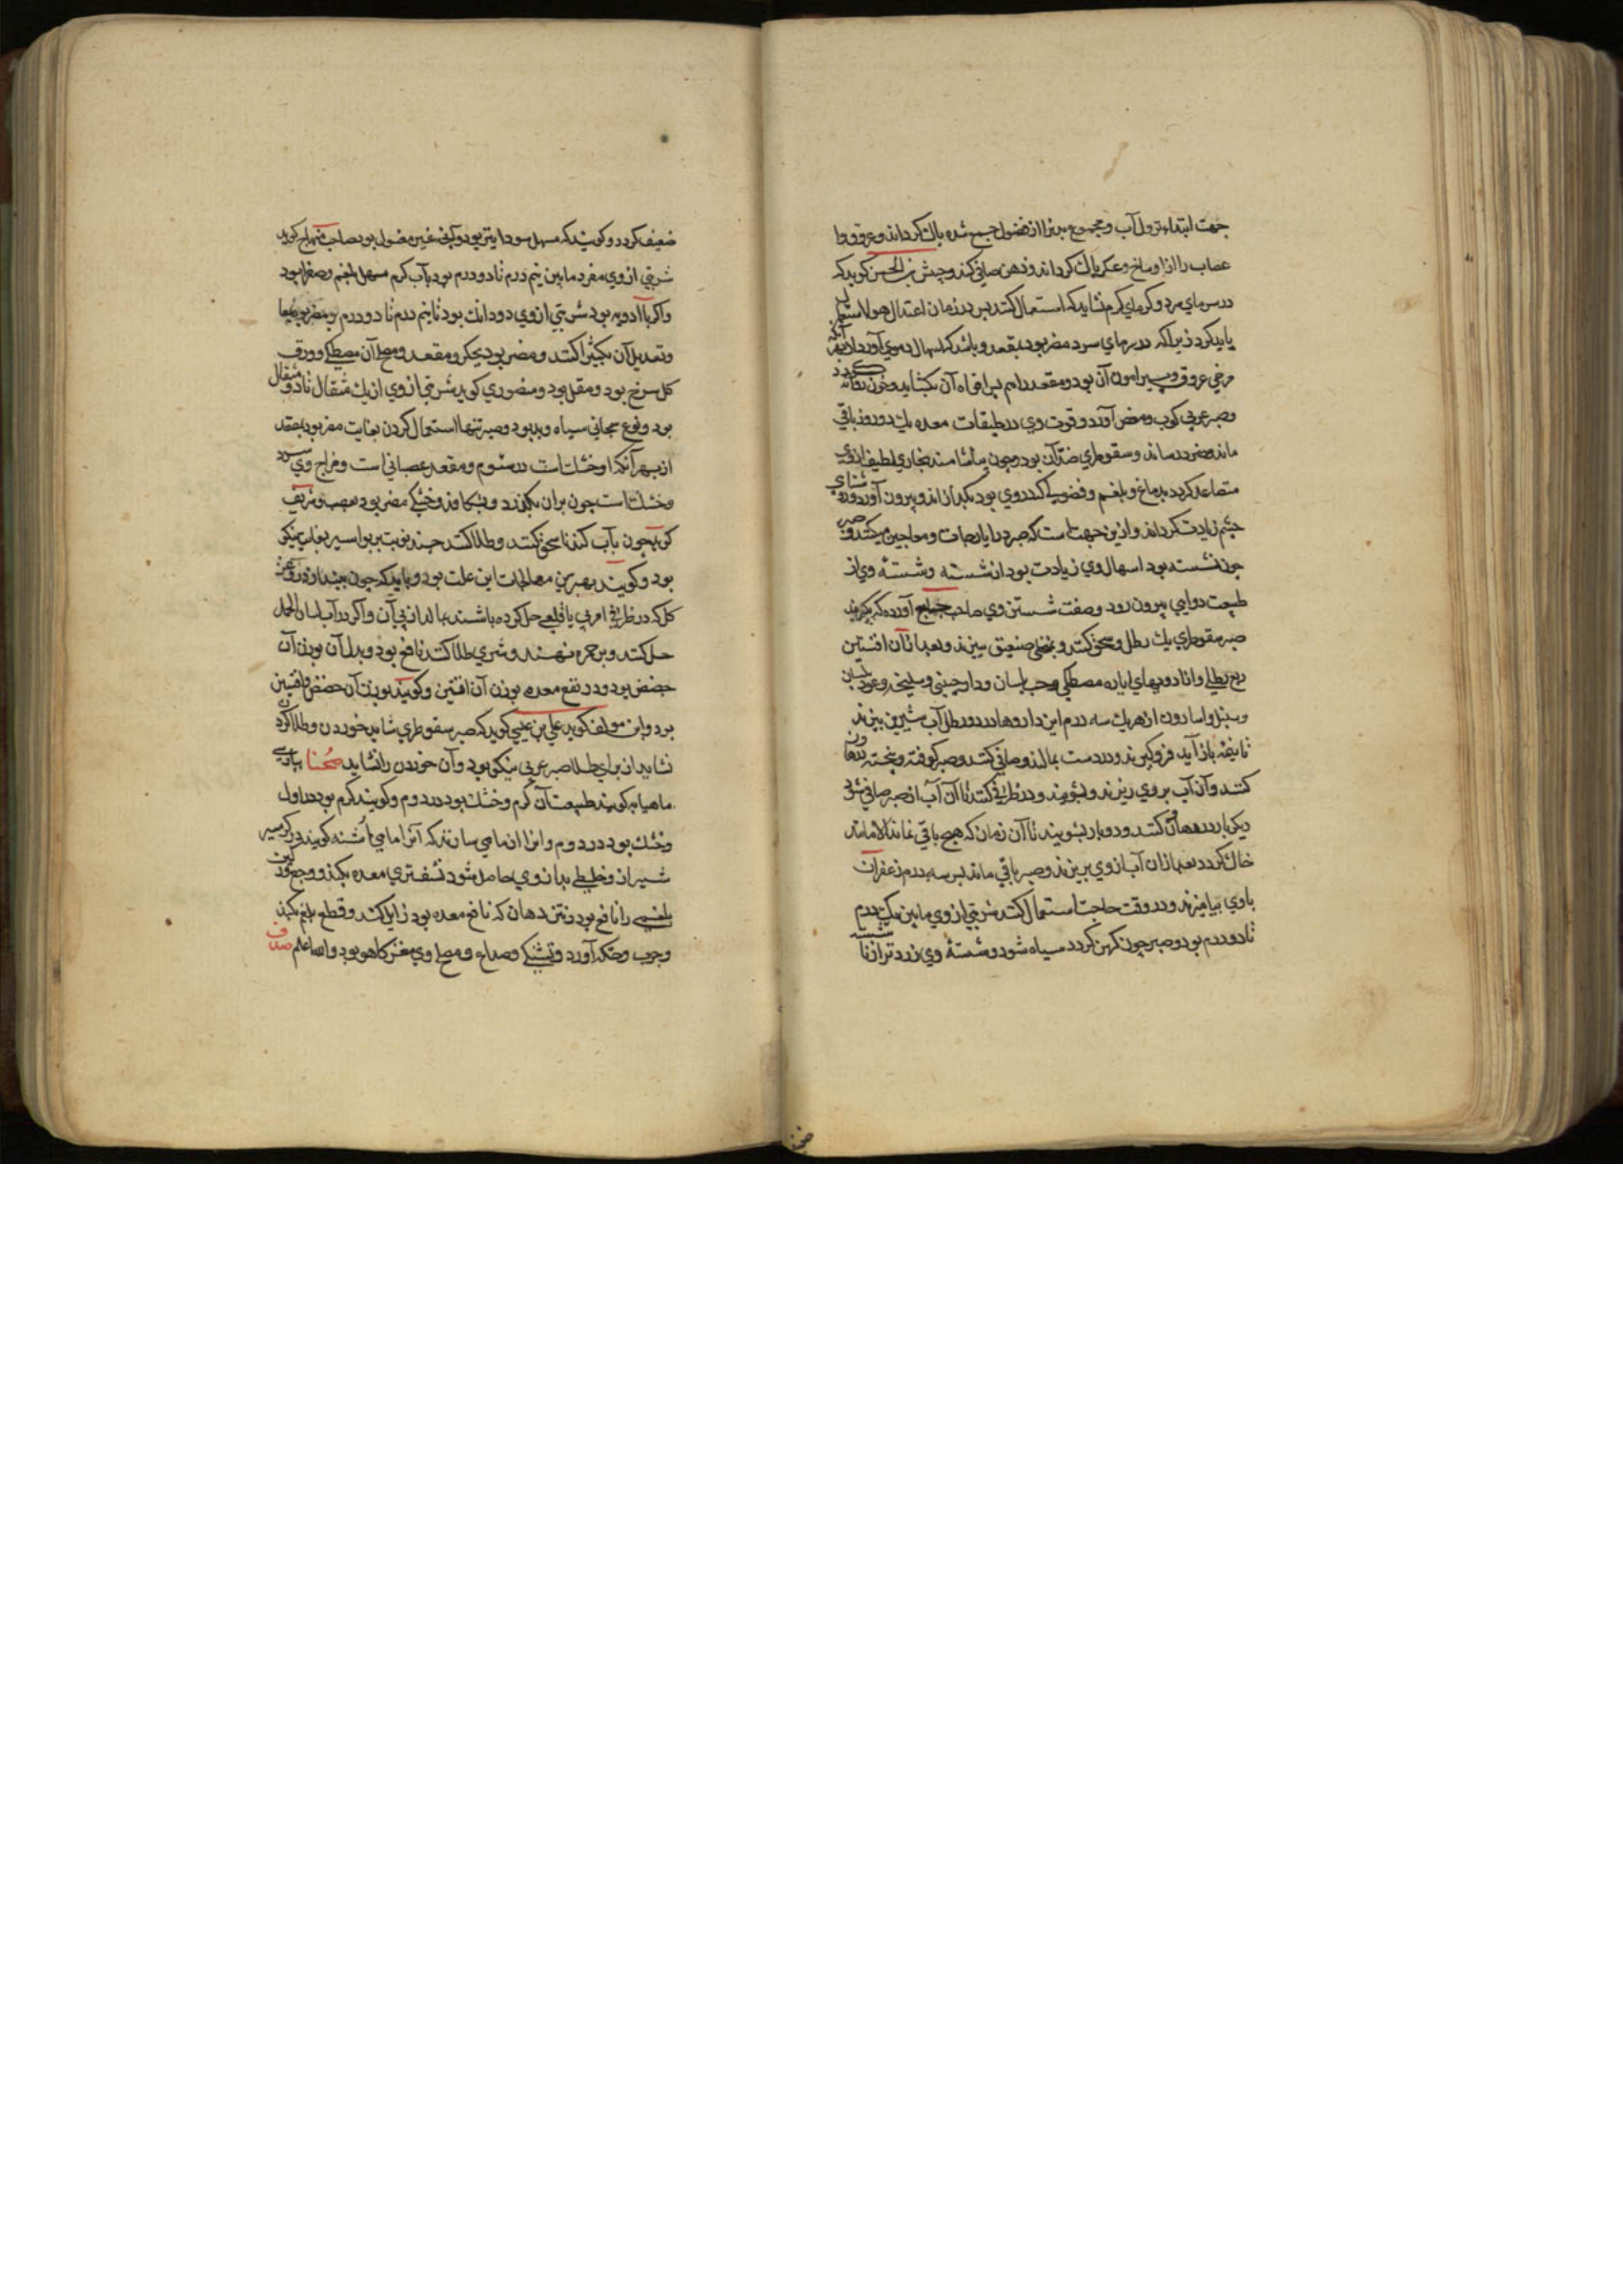 جهت ابتداء نزول آب و مجموع بدنرا از فضول جمع شده پاك كرداند و عروق و
عصاب را از اوساخ وعكر پاك كرداند و ذهن صافی كند و حبش بن الحسن كويد كه
در سرمای سرد و كرمای كرم نشايد كه استعمال كنند پس در زمان اعتدال هوا استعمال
بايد كرد زيرا كه در سرمای سرد مضر بود بمقعد و باشد كه اسهال دموی آورد از بهر آنكه
مرخی عروق و پيرامون آن بود و مقعد را هم پس افواه آن بكشايد و خون روانه كردد
وصبر عربی كرب و مغص آورد و قوت وی در طبقات معده يك دو روز باقی
ماند و ضرر رساند و سقوطری ضد آن بود و چون بياشامند بخاری لطيف از وی
متصاعد كردد بدماغ و بلغم و فضولی كه در وی بود بكدازاند و بيرون آورد و روشنای
چشم زيادت كرداند و از ين جهت است كه صبر در ايارجات و معاجين ميكنند و صبر
چون نشسته بود اسهال وی زيادت بود از شسته و شسته وی از
طبيعت دوايی بيرون رود و صفت شستن وی صاحب منهاج آورده كه بكيرند
صبر سقوطری يك رطل و سحق كنند و بمنخلی صفيق ببيزند و بعد از آن افسنتين
ربع رطلی و از ادويهای اياره مصطكی و حب بلسان و دارچينی و سليخه و عود بلسان
و سنبل و اسارون از هر يك سه درم اين داروها در دو رطل آب شيرين بپزند
تا بنيمه باز آيد فرو كيرند و در دست بمالند و صافی كنند و صبر كوفته و بيخته در هاون
كنند و آن آب بر وی ريزند و بشويند و در ظرفی كنند تا آن آب از صبر صافی شود
ديكر بار در هاون كنند و دوبار بشويند تا آن زمان كه هيچ باقی نماند الا مانند
خاك كردد بعد از آن آب از وی بريزند و صبر باقی ماند پس سه درم زعفران
با وی بياميزند و در وقت حاجت استعمال كنند شربتی از وی مابين يك درم
تا دو درم بود و صبر چون كهن كردد سياه شود و شسته وی زردتر از ناشسته
ضعيف كردد و كويند كه مسهل سودا نيز بود و آب غير مغسول بود صاحب منهاج كويد
شربتی از وی مفرد مابين نيم درم تا دو درم بود بآب كرم مسهل بلغم و صفرا بود
و اكر با ادويه بود شربتی از وی دو دانك بود تا نيم درم تا دو درم و مضر بود بمعا
و تعديل آن بكثيرا كنند و مضر بود بجكر و مقعد و مصلح آن مصطكی و ورق
كل سرخ بود و مقل بود و منصوری كويد شربتی از وی از يك مثقال تا دو مثقال
بود و نوع سمجانی سياه و بد بود و صبر تنها استعمال كردن بغايت مضر بود بمقعد
از بهر آنكه او خشك است در سئوم و مقعد عصبانی است و مزاج وی سرد
و خشك است چون بران بكذرد و بشكافد و خشكی مضر بود بعصب و شريف
كويد چون بآب كندنا سحق كنند و طلا كنند چند نوبت بر بواسير بغايت نيكو
بود و كويند بهترين معالجات اين علت بود و بايد كه چون بيندازد روغن
كل كه در ظرفی از می يا قلعی حل كرده باشند بمالد از پی آن و اكر در آب لسان الحمل
حل كنند و بر جمره نهند و شری طلا كنند نافع بود و بدل آن بوزن آن
حضض بود و در نفع معده بوزن آن افسنتين و كويند بوزن آن حضض و افسنتين
بود و ابن مولف كويد علی بن عيسی كويد كه صبر سقوطری شايد خوردن و طلا كردن
نشايد از برای طلا صبر عربی نيكو بود و آن خوردن را نشايد صحنا بپارسی
ماهيابه كويند طبيعت آن كرم و خشك بود در دوم و كويند كرم بود در اول
و خشك بود در دوم و انرا از ماهی سازند كه آنرا ماهی اشنه كويند در كرمسير
شيراز و خلطی بد از وی حاصل شود نشف تری معده بكند و وجع ورك
بلغمی را نافع بود و نتن دهان كه نافع معده بود زايل كند و قطع بلغم بكند
و جرب و حكه آورد و تشنكی و صداع و مصلح وی مغز كاهو بود والله اعلم صدف